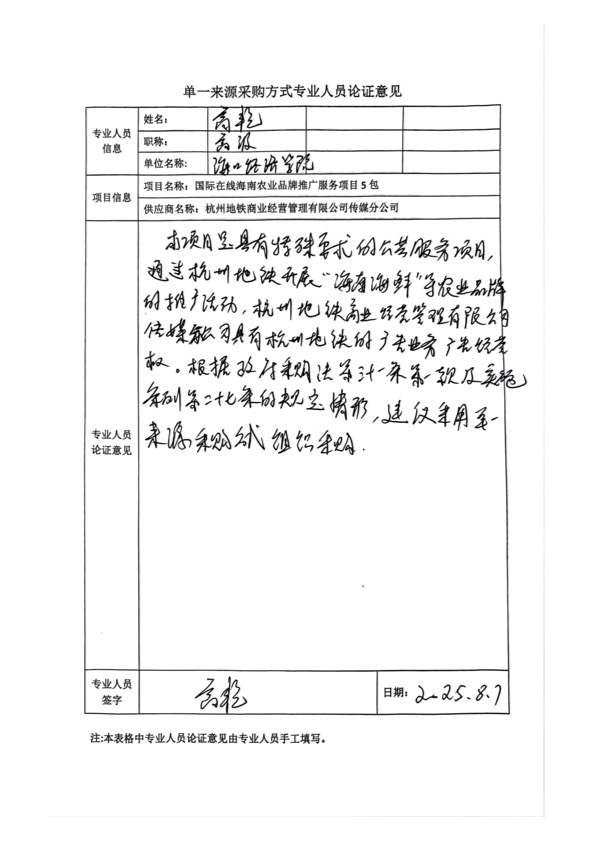 单一来源采购方式专业人员论证意见
专业人员信息
姓名：
职称： 高级
单位名称： 海口经济学院
项目信息
项目名称：国际在线海南农业品牌推广服务项目5包
供应商名称：杭州地铁商业经营管理有限公司传媒分公司
专业人员论证意见
本项目是具有特殊要求的公共服务项目，
通过杭州地铁开展“海南海鲜”等农业品牌
的推广活动，杭州地铁商业经营管理有限公司
传媒分公司具有杭州地铁的广告业务广告经营
权。根据政府采购法第卅一条第一款及实施
条例第二十七条的规定情形，建议采用单一
来源采购方式组织采购.
专业人员签字
日期： 2025.8.7
注:本表格中专业人员论证意见由专业人员手工填写。